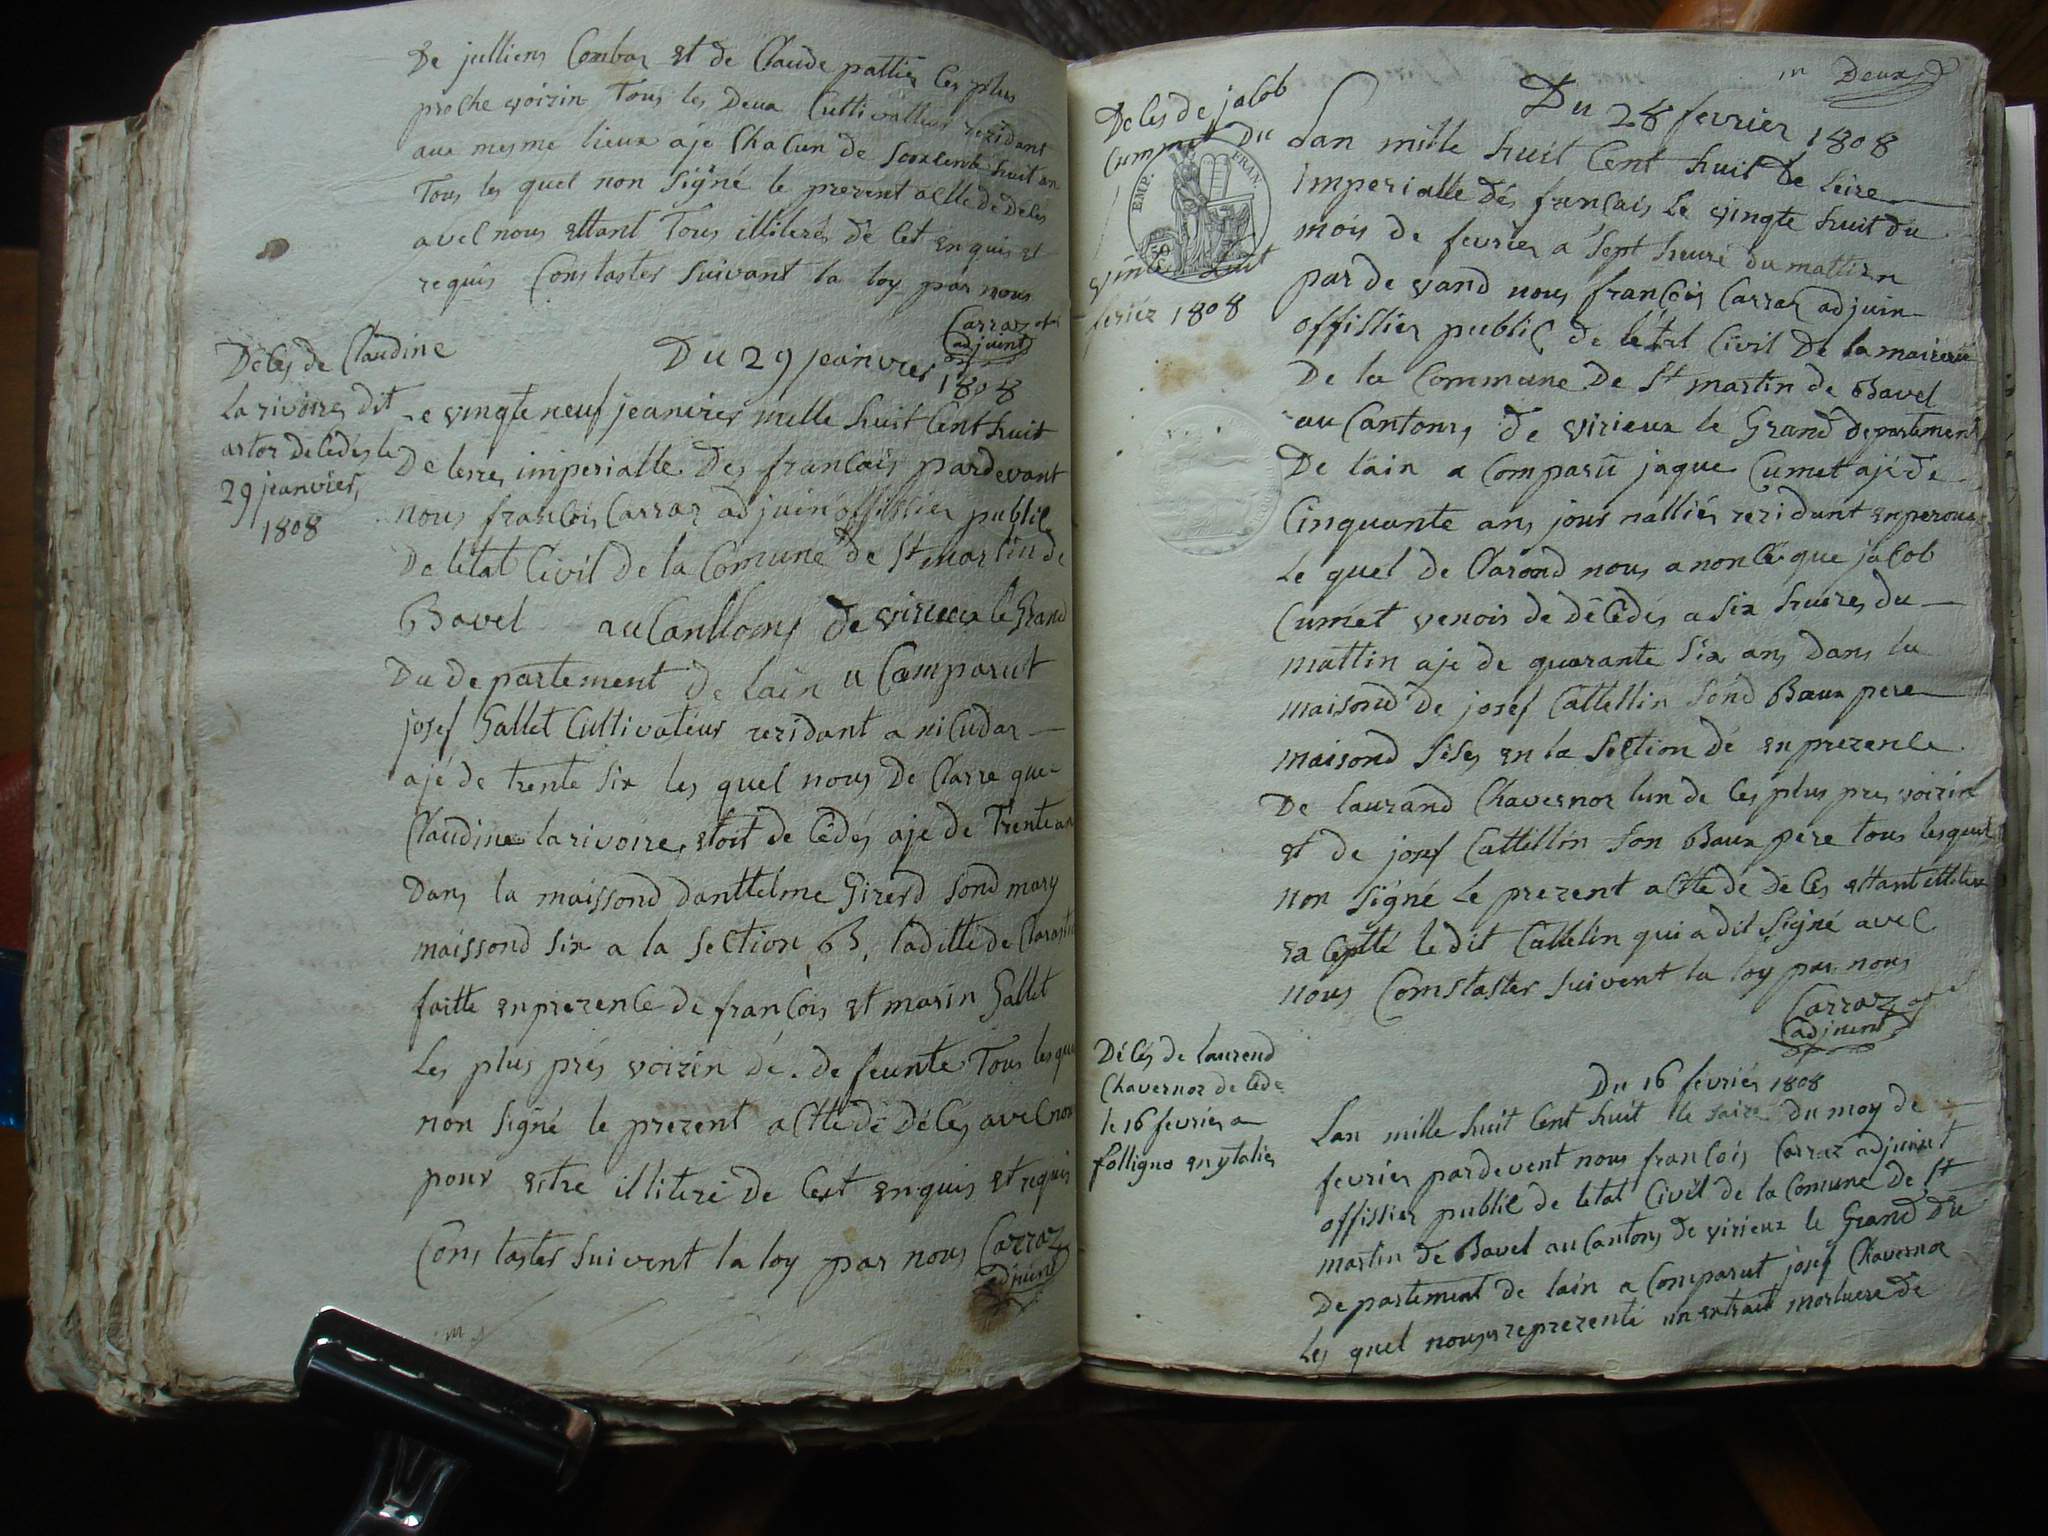 De julliens Combaz et de Claude pattier les plus
proche voizin Tous les Deux Cultivatteur rezidant
aux mesme lieux aje Chacun de soixente huit an
Tous les quel non Signé le prezent acte de Décés
avec nous ettant Tous illiteré de cet enquis et
requis Constaster suivant la loy par nous
Carraz
adjuint
Déces de Claudine
la rivoire dit
artor décédés le
29 jeanvier
1808
Du 29 jeanvier
1808
Le vingte neuf jeanvier mille huit Cent huit
De lerre imperialle Des francais pardevant
nous francois Carraz adjuin offissier public
De létat Civil de la Comune de St martin de
Bavel au Canttons de virieux le Grand
Du departement de lain a Comparut
josef Gallet Cultivateur rezidant a
ajé de trente six les quel nous De Clarre que
Claudine la rivoire etoit de cédés aje de Trente an
Dans la maissond danttelme Girerd sond mary
maissond six a la section B, laditte de Claration
faitte en prezence de francois et marin Gallet
Les plus prés voizin dé. de feunte Tous les quel
non Signé le prezent actte dé Décés avec nous
pour estre illiteré de Cest enquis et requis
Constaster suivent la loy par nous Carraz
adjuint
Deux
Déces de jacob
Cummet Du
EMP. FRAN.
vinte huit
feriéz 1808
Du 28 fevrier 1808
Lan mille huit Cent huit De leire
imperialle Dés francais Le vingte huit du
mois de fevrier a sept heure du mattien
par de vand nous francois Carraz adjuin
offissier public de létat Civil De la mairerie
De la Commune De St martin de Bavel
au Cantons de virieux le Grand departement
De lain a Comparu jaque Cumet ajé de
Cinquante ans jour nalliés rezidant en perouz
Le quel de Clarond nous a noncé que jacob
Cumet venois de décédés a six heures du
mattin aje de quarante six ans dans la
maisond de josef Cattellin sond Baux pere
maisond sises en la Section dé en prezence
De laurand Chavernoz lun de les plus pres voizin
et de josef Cattellin son Baux pere tous lesquel
non signé le prezent actte dé déces ettant illitere
exceptté ledit Cattelin qui a dit signé avec
nous Comstaster suivent la loy par nous
Carraz
adjuint
Décés de laurend
Chavernoz de cédé
le 16 fevrier a
folligno en ytalies
Du 16 fevriér 1808
Lan mille huit Cent huit le saize du moy de
fevrier pardevent nous francois Carraz adjuint
offissier public de létat Civil de la Comune de St
martin de Bavel au Cantons de virieux le Grand du
departement de lain a Comparut josef Chavernoz
Les quel nous reprezenté un extrait mortuere de